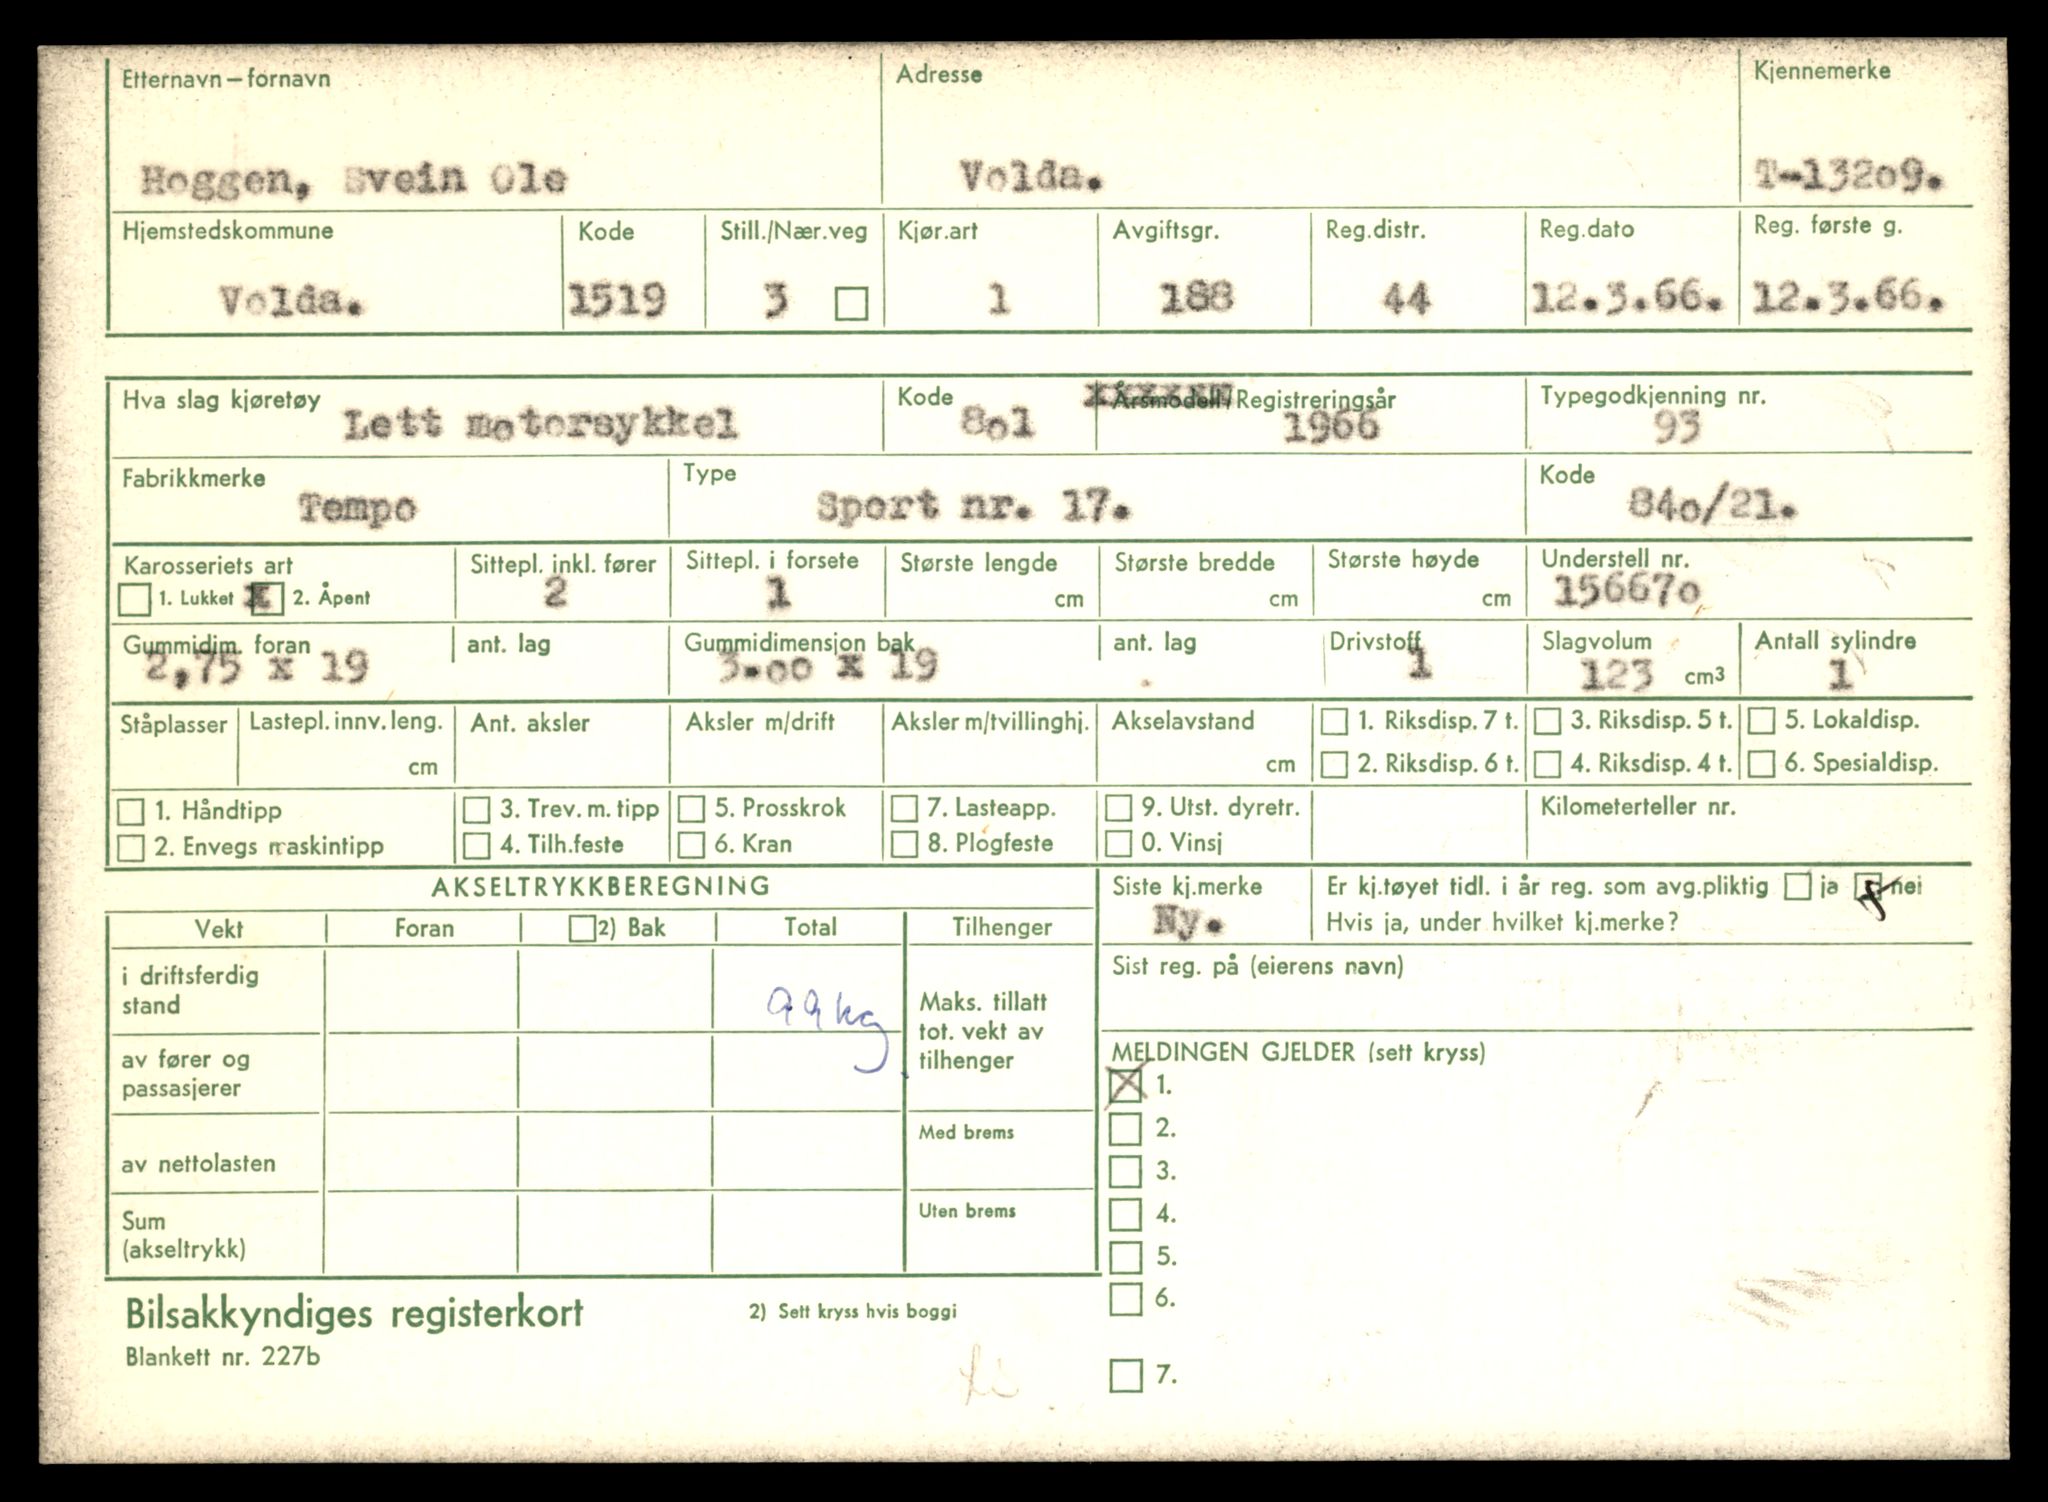 Etternavn – fornavn Adresse Kjennemerke
Hoggen, Svein Ole Volda. T-13209.
Hjemstedskommune Kode Still./Nær.veg Kjør.art Avgiftsgr. Reg.distr. Reg.dato Reg. første g.
Volda. 1519 3 1 188 44 12.3.66. 12.3.66.
Hva slag kjøretøy Kode Årsmodell/Registreringsår Typegodkjenning nr.
Lett motorsykkel 801 1966 93
Fabrikkmerke Type Kode
Tempo Sport nr. 17. 840/21.
Karosseriets art Sittepl. inkl. fører Sittepl. i forsete Største lengde Største bredde Største høyde Understell nr.
1. Lukket x 2. Åpent 2 1 cm cm cm 156670
Gummidim. foran ant. lag Gummidimensjon bak ant. lag Drivstoff Slagvolum Antall sylindre
2,75 x 19 3.00 x 19 1 123 cm3 1
Ståplasser Lastepl. innv. leng. Ant. aksler Aksler m/drift Aksler m/tvillinghj. Akselavstand 1. Riksdisp. 7 t. 3. Riksdisp. 5 t. 5. Lokaldisp.
cm cm 2. Riksdisp. 6 t. 4. Riksdisp. 4 t. 6. Spesialdisp.
1. Håndtipp 3. Trev. m. tipp 5. Prosskrok 7. Lasteapp. 9. Utst. dyretr. Kilometerteller nr.
2. Envegs maskintipp 4. Tilh.feste 6. Kran 8. Plogfeste 0. Vinsj
AKSELTRYKKBEREGNING Siste kj.merke Er kj.tøyet tidl. i år reg. som avg.pliktig ja nei
Vekt Foran 2) Bak Total Tilhenger Ny. Hvis ja, under hvilket kj.merke?
i driftsferdig Sist reg. på (eierens navn)
stand 99 kg Maks. tillatt
tot. vekt av
av fører og tilhenger MELDINGEN GJELDER (sett kryss)
passasjerer X 1.
Med brems 2.
av nettolasten 3.
Sum Uten brems 4.
(akseltrykk) 5.
6.
Bilsakkyndiges registerkort 2) Sett kryss hvis boggi
Blankett nr. 227b
7.